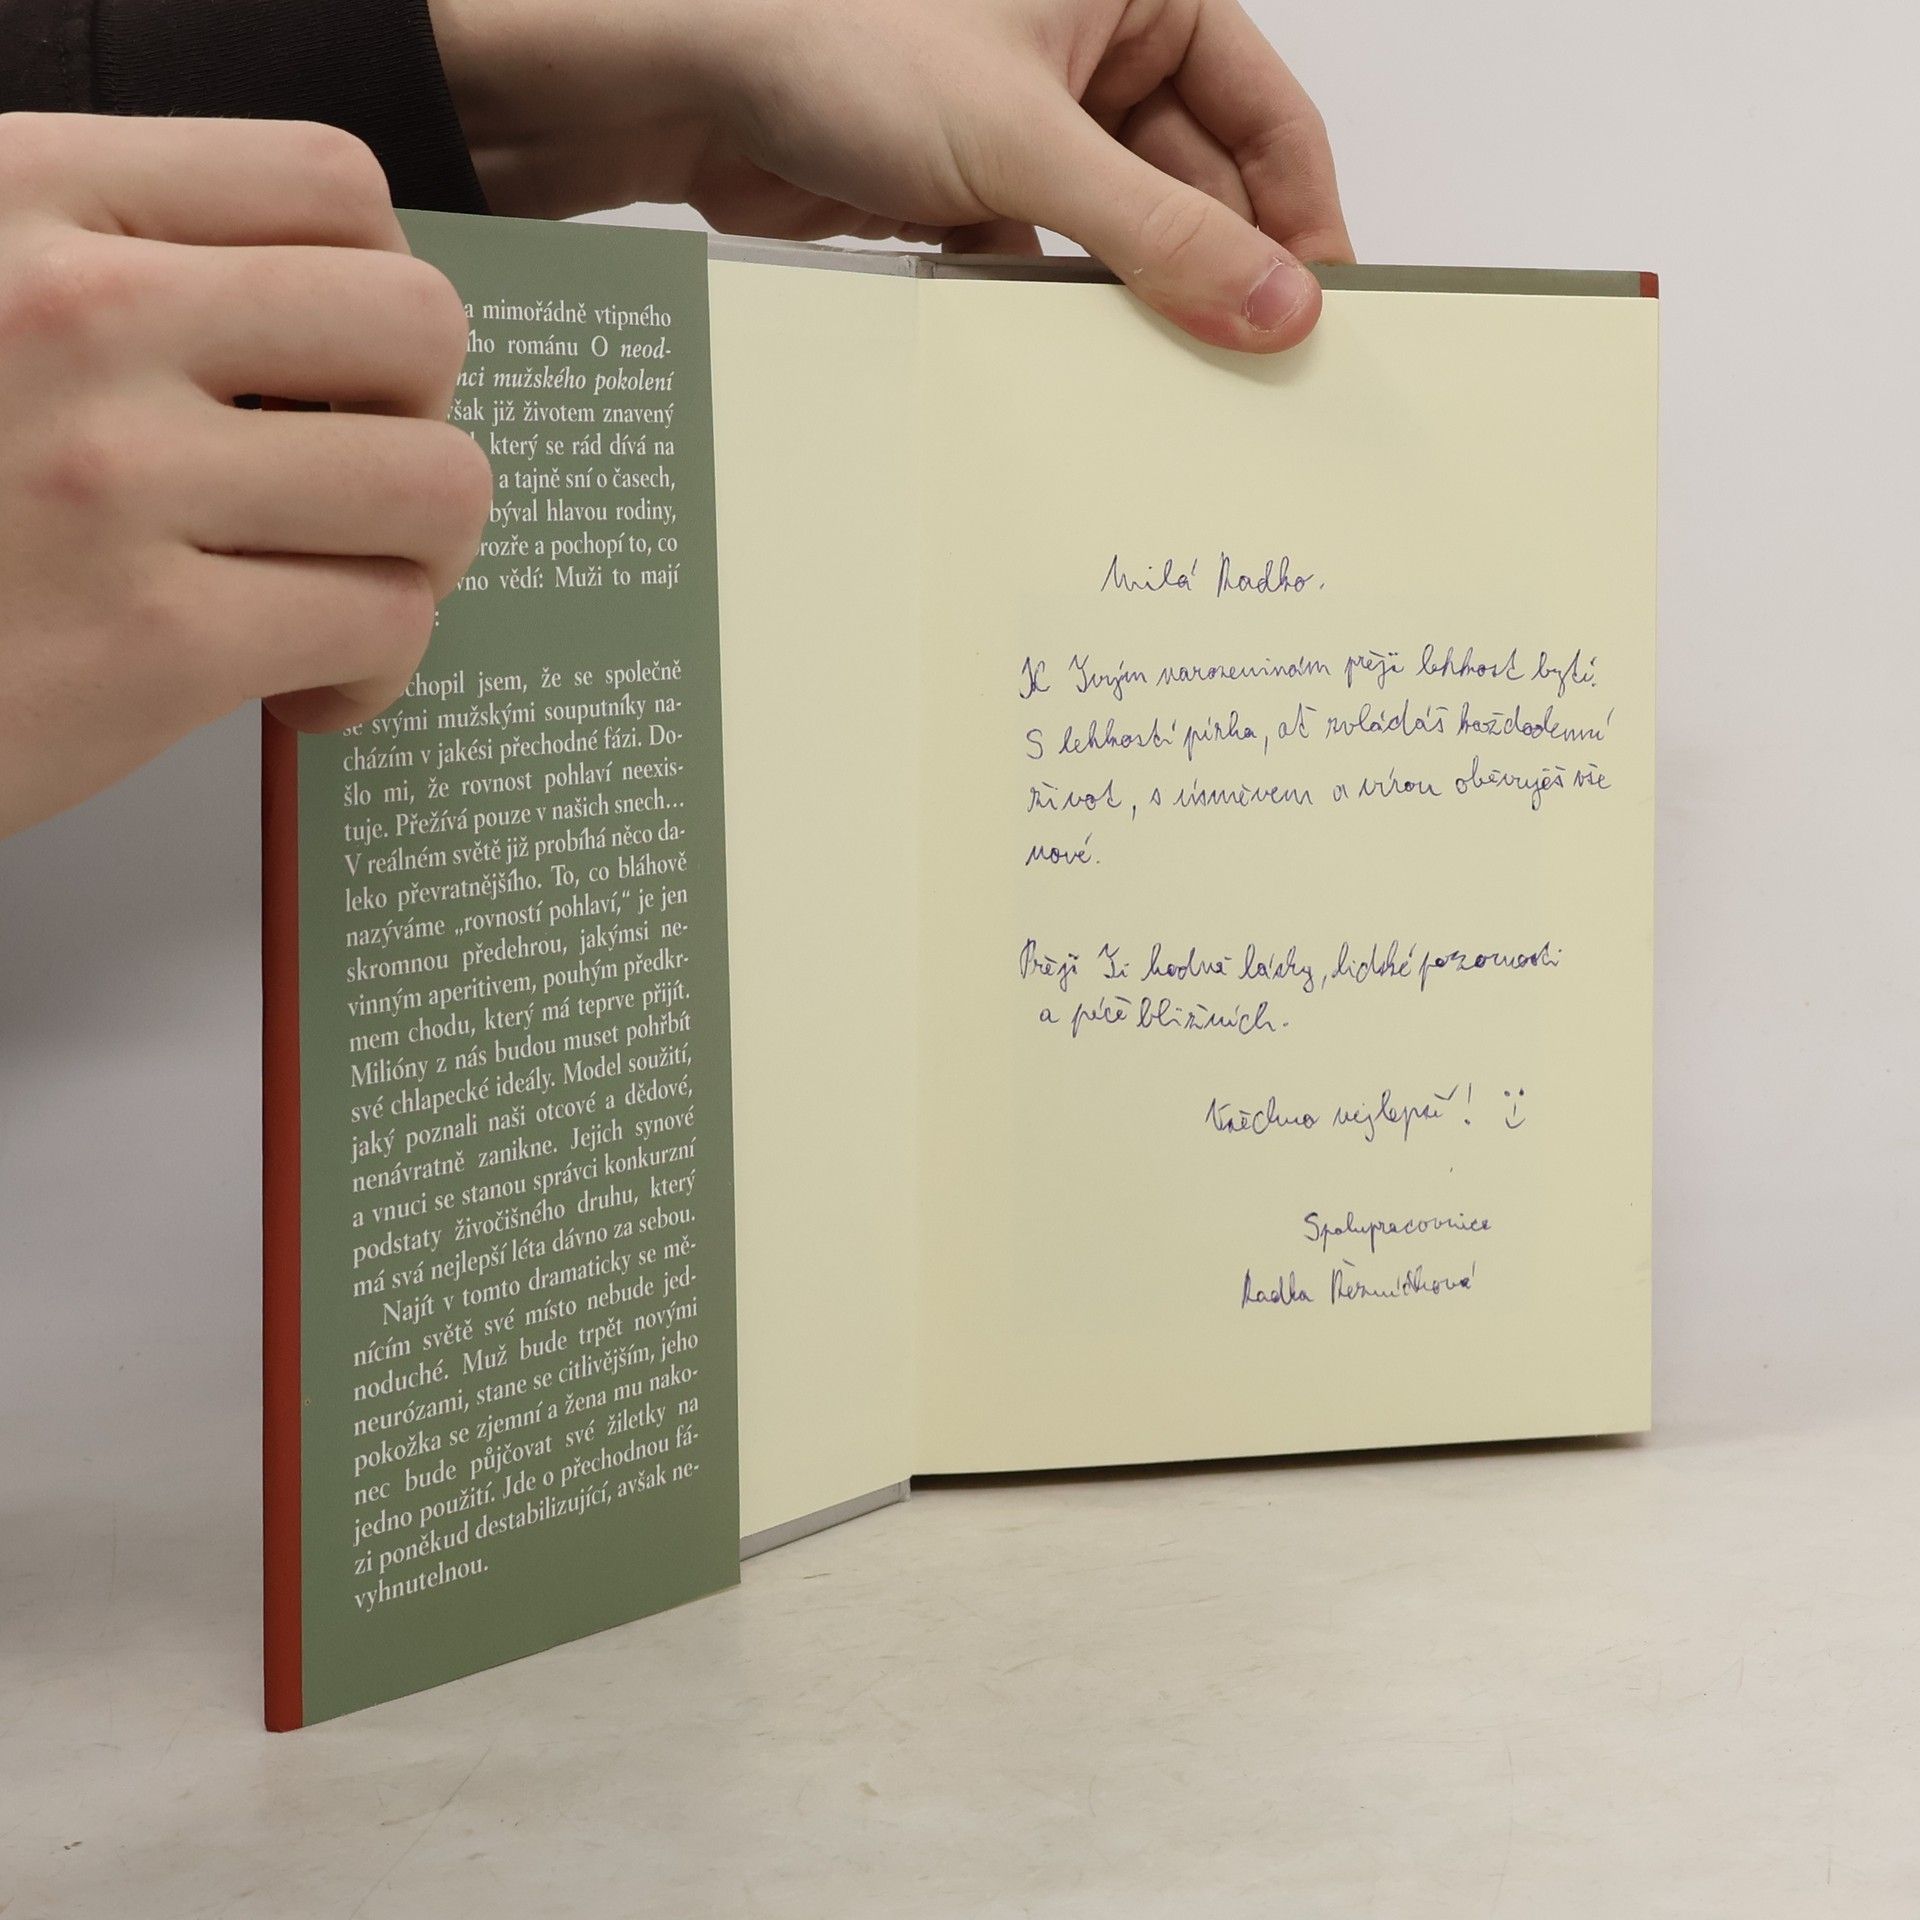 a mimořádně vtipného
ího románu O neod-
nci mužského pokolení
však již životem znavený
který se rád dívá na
a tajně sní o časech,
býval hlavou rodiny,
rozře a pochopí to, co
vno vědí: Muži to mají
:
chopil jsem, že se společně
se svými mužskými souputníky na-
cházím v jakési přechodné fázi. Do-
šlo mi, že rovnost pohlaví neexis-
tuje. Přežívá pouze v našich snech...
V reálném světě již probíhá něco da-
leko převratnějšího. To, co bláhově
nazýváme „rovností pohlaví,“ je jen
skromnou předehrou, jakýmsi ne-
vinným aperitivem, pouhým předkr-
mem chodu, který má teprve přijít.
Milióny z nás budou muset pohřbít
své chlapecké ideály. Model soužití,
jaký poznali naši otcové a dědové,
nenávratně zanikne. Jejich synové
a vnuci se stanou správci konkurzní
podstaty živočišného druhu, který
má svá nejlepší léta dávno za sebou.
Najít v tomto dramaticky se mě-
nícím světě své místo nebude jed-
noduché. Muž bude trpět novými
neurózami, stane se citlivějším, jeho
pokožka se zjemní a žena mu nako-
nec bude půjčovat své žiletky na
jedno použití. Jde o přechodnou fá-
zi poněkud destabilizující, avšak ne-
vyhnutelnou.
Milá Radko.
K Tvým narozeninám přeji lehkost bytí.
S lehkostí pírka, ať zvládáš každodenní
život, s úsměvem a vírou objevuješ vše
nové.
Přeji Ti hodně lásky, lidské pozornosti
a péče bližních.
Všechno nejlepší! :)
Spolupracovnice
Radka Řezníčková